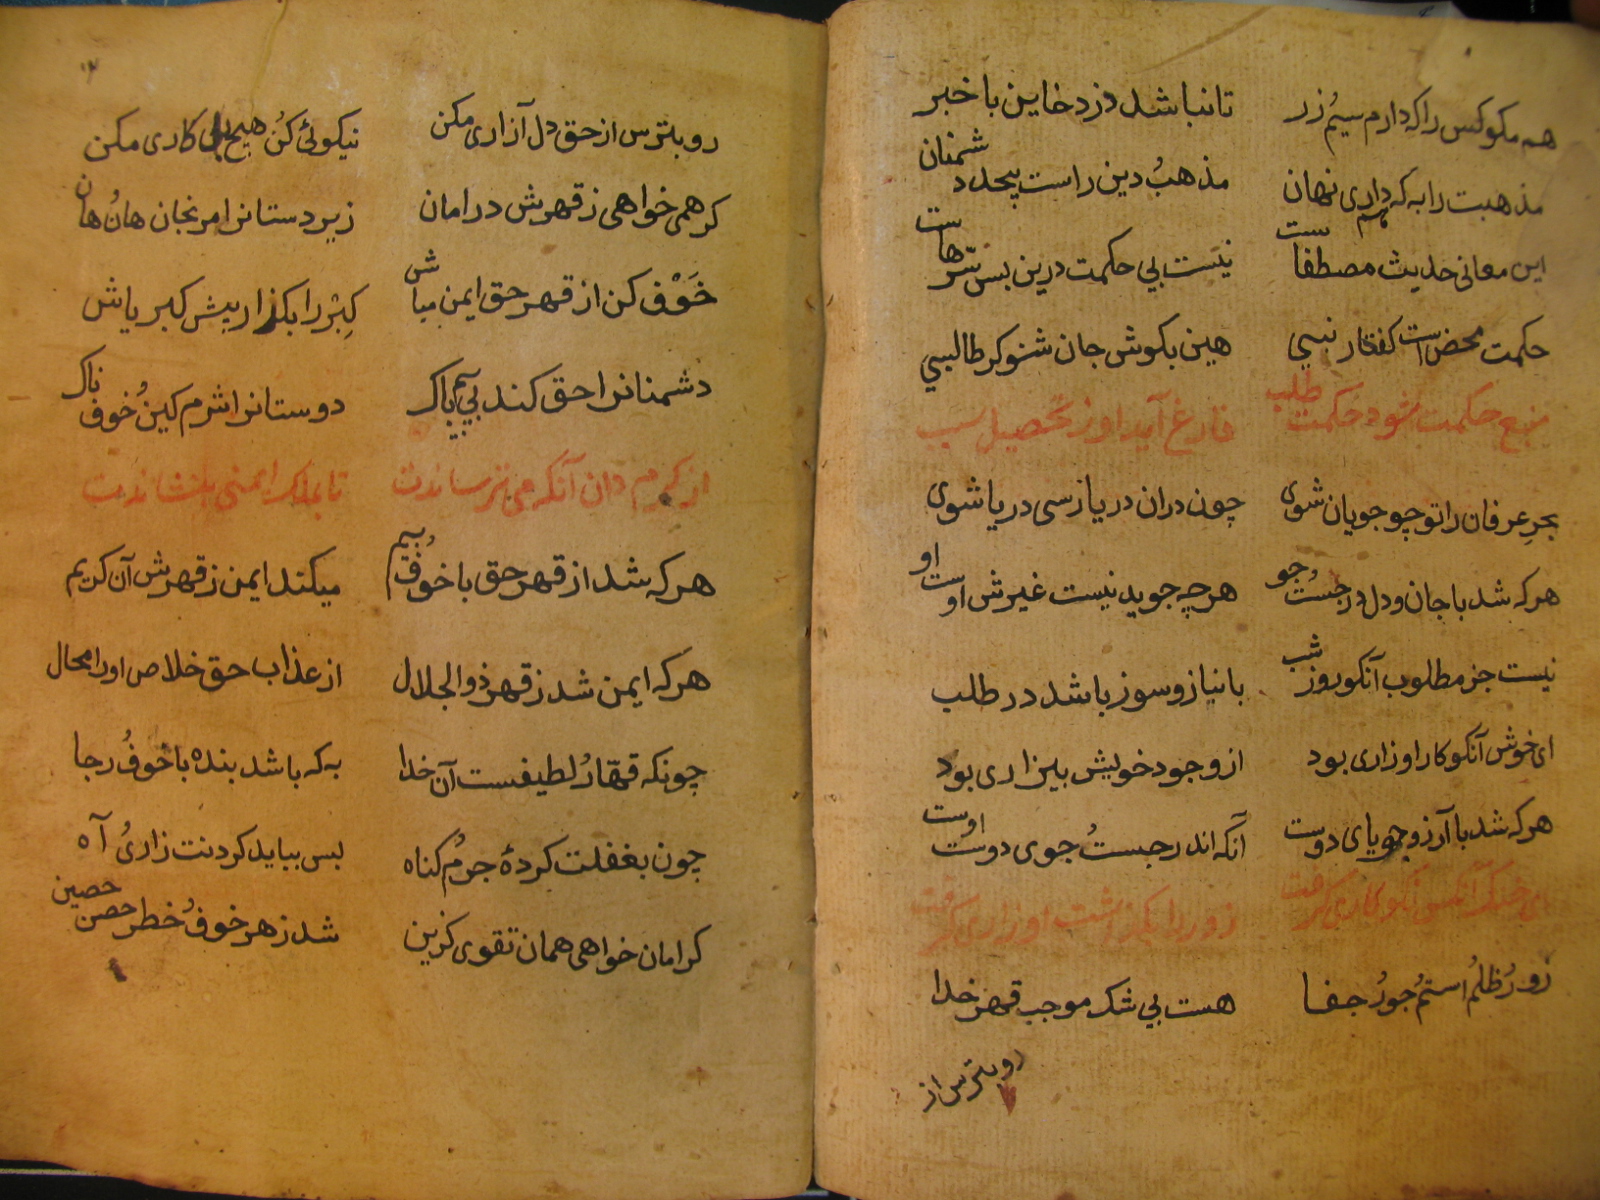 هم مکو کس را که دارم سیمُ زر تا نباشد دزد خاین با خبر
مذهبت را به که داری نهان هم مذهبُ دین راست بیحدد شمنان
این معانی حدیث مصطفاست نیست بی حکمت درین بس سرّهاست
حکمت محض است کفتار نبی هین بکوش جان شنو کر طالبی
منبع حکمت شود حکمت طلب فارغ آید او ز تحصیل سبب
بحرِ عرفان را تو چو جویان شوی چون دران دریا رسی دریا شوی
هر که شد با جان و دل در جستُ جو هر چه جوید نیست غیرش اوست او
نیست جز مطلوب آنکو روز شب با نیاز و سوز باشد در طلب
ای خوش آنکو کار او زاری بود از وجود خویش بیزاری بود
هر که شد با آرزو جویای دوست آنکه اندر جستُ جوی دوست اوست
ای خنک آنکس نکو کاری کرفت زور را بکزاشت او زاری کرفت
زورُ ظلمُ استمُ جورُ جفا هست بی شک موجب قهر خدا
رو بترس از
۱۳
رو بترس از حق دل آزاری مکن نیکوئی کن هیچ بد کاری مکن
کر همی خواهی ز قهرش در امان زیر دستانرا مرنجان هانُ هان
خَوْف کن از قهر حق ایمن مباش کِبْر را بکذار پیش کبریاش
دشمنانرا حق کند بی بیم باک دوستانرا شرم کینُ خوف ناک
از کرم دان آنکه می ترساندت تا بملک ایمنی بنشاندت
هر که شد از قهر حق با خوفُ بیم میکند ایمن ز قهرش آن کریم
هر که ایمن شد ز قهر ذو الجلال از عذاب حق خلاص او را محال
چونکه قهّارُ لطیفست آن خدا به که باشد بنده با خوفُ رجا
چون بغفلت کردهٔ جرمُ کناه بس بباید کردنت زاریُ آه
کر امان خواهی همان تقوی کزین شد ز هر خوفُ خطر حصن حصین